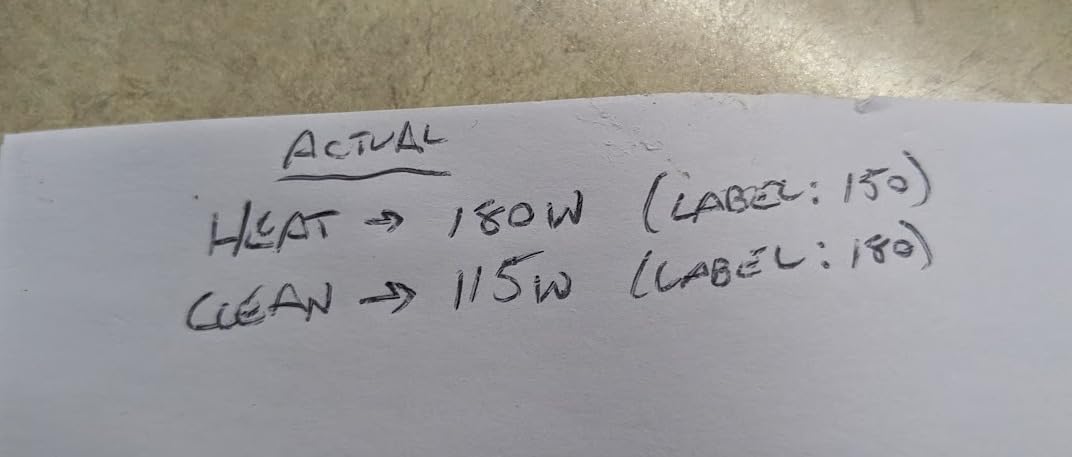 ACTUAL
HEAT → 180W (LABEL: 150)
CLEAN → 115W (LABEL: 180)